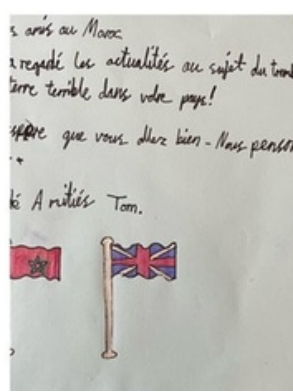 s amis au Maroc
a regadé les actualités au sujet du tremb
terre terrible dans votre pays!
spère que vous allez bien - Nous penson
té Amitiés Tom.